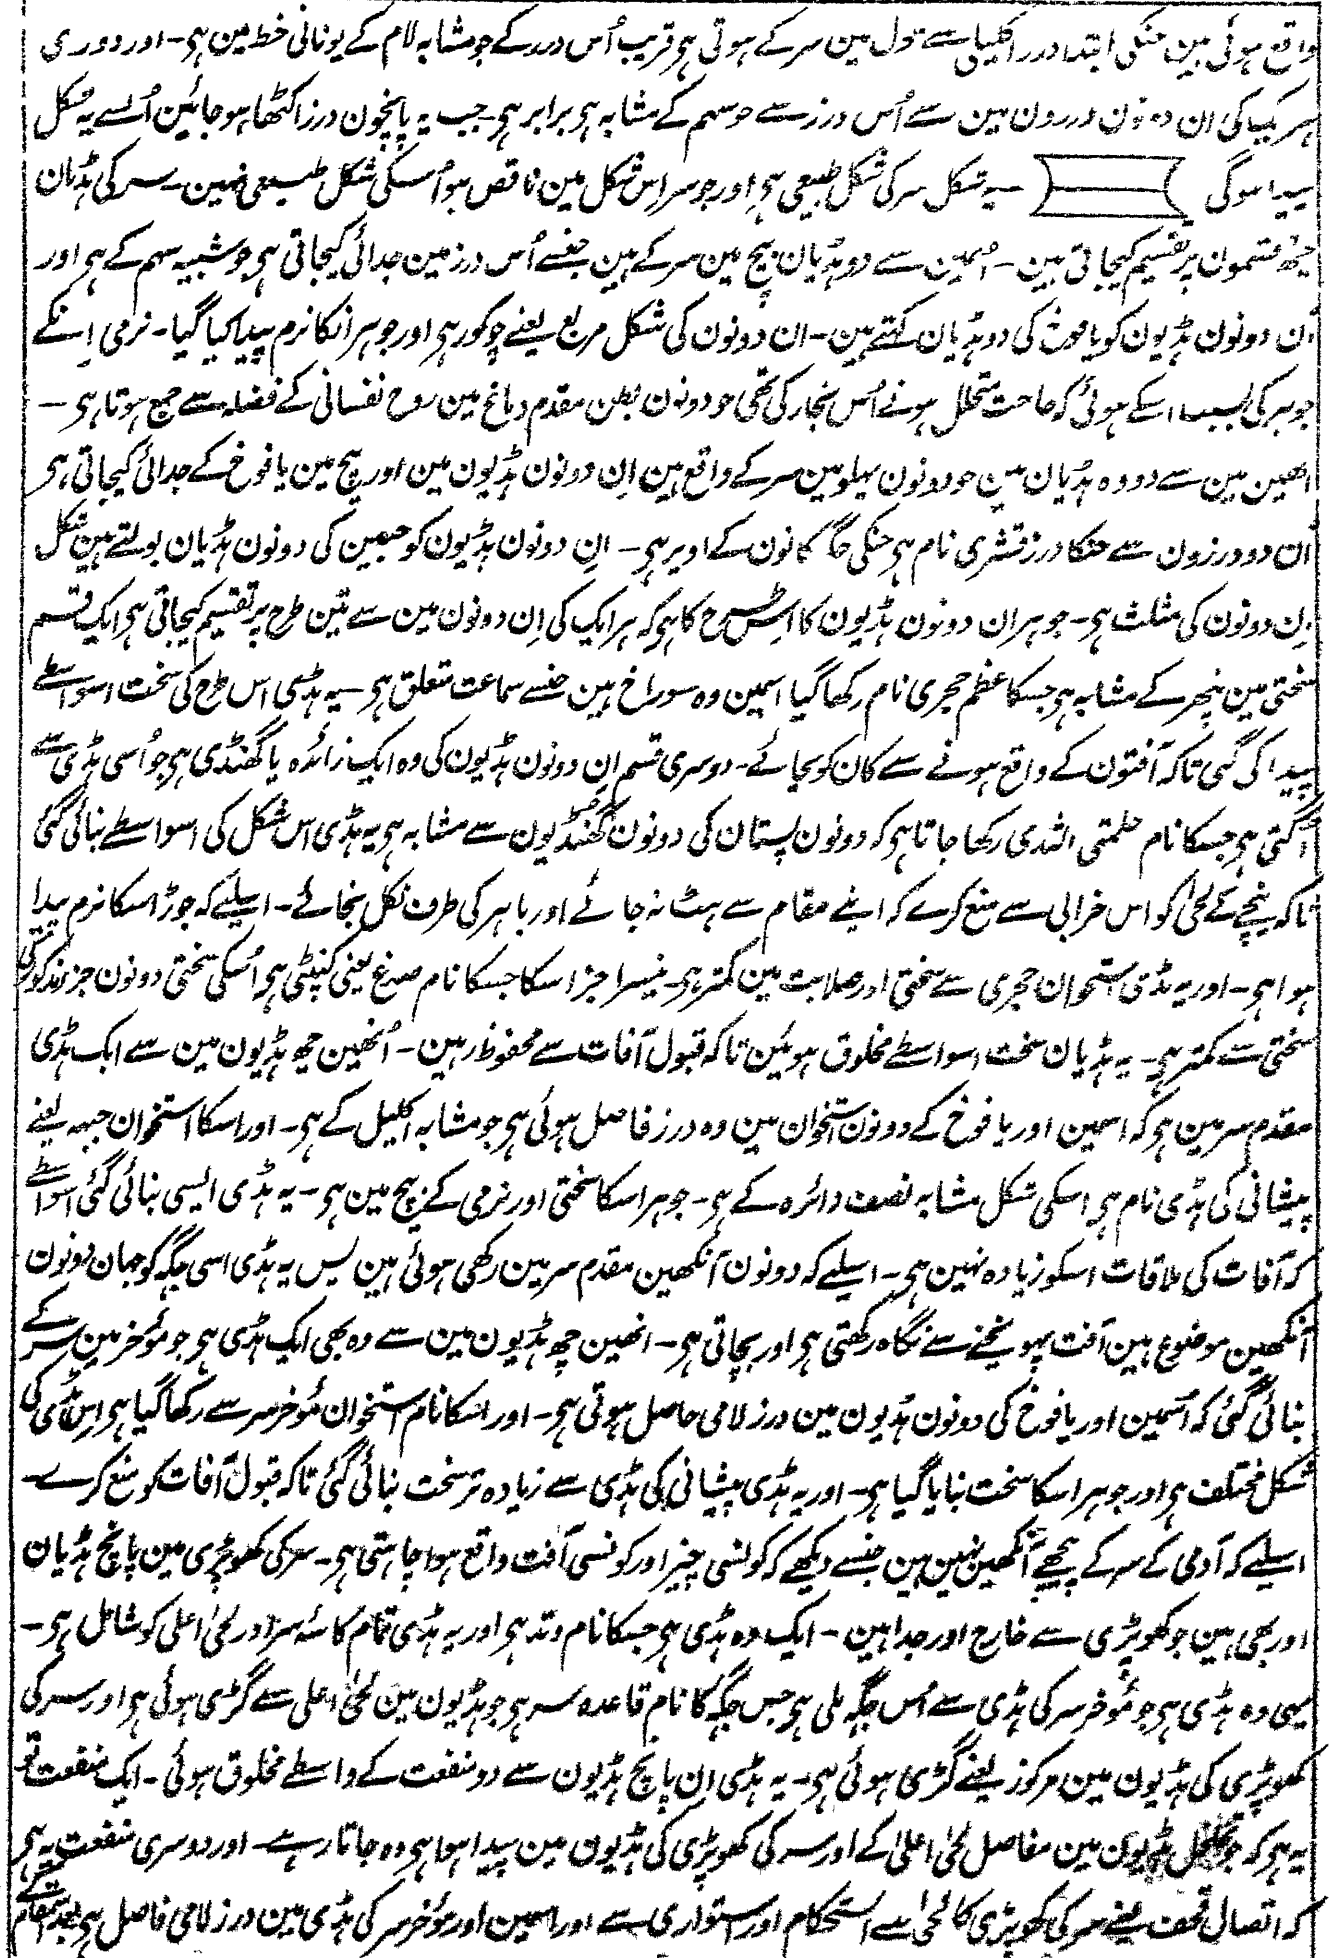 واقع ہوئی ہین جنکی ابتدا درز اکلیلی سے طول مین سر کے ہوتی ہی قریب اُس درز کے جو مشابہ لام کے یونانی خط مین ہی۔ اور دوری
ہر یک کی ان دونون درزون مین سے اُس درز سے جو سہم کے مشابہ ہی برابر ہی۔ جب یہ پانچون درز اکٹھا ہو جائین اُسے یہ شکل
پیدا ہوگی ۔ یہ شکل سر کی شکل طبیعی ہی اور جو سر اِس شکل مین ناقص ہو اُسکی شکل طبیعی نہین۔ سر کی ہڈیان
چھ قسمون پر تقسیم کیجاتی ہین۔ اُسمین سے دو ہڈیان بیچ مین سر کے ہین جنسے اُس درز مین جدائی کیجاتی ہی جو شبیہ سہم کے ہی اور
اُن دونون ہڈیون کو یافوخ کی دو ہڈیان کہتے ہین۔ ان دونون کی شکل مربع یعنے چوکور ہی اور جوہر انکا نرم پیدا کیا گیا۔ نرمی اِنکے
جوہر کی بسبب اسکے ہوئی کہ حاجت متحلل ہونے اُس بخار کی تھی جو دونون بطن مقدم دماغ مین روح نفسانی کے فضلہ سے جمع ہوتا ہی۔
انھین مین سے دو وہ ہڈیان ہین جو دونون پہلو مین سر کے واقع ہین اِن دونون ہڈیون مین اور بیچ مین یافوخ کے جدائی کیجاتی ہی
اُن دو درزون سے جنکا درز قشری نام ہی جنکی جگہ کانون کے اوپر ہی۔ اِن دونون ہڈیون کو جبین کی دونون ہڈیان بولتے ہین شکل
اِن دونون کی مثلث ہی۔ جوہر ان دونون ہڈیون کا اس طرح کا ہی کہ ہر ایک کی اِن دونون مین سے تین طرح پر تقسیم کیجاتی ہی ایک قسم
سختی مین پتھر کے مشابہ ہی جسکا عظم حجری نام رکھا گیا اسمین وہ سوراخ ہین جنسے سماعت متعلق ہی۔ یہ ہڈی اس طرح کی سخت اسواسطے
پیدا کی گئی تاکہ آفتون کے واقع ہونے سے کان کو بچائے۔ دوسری قسم اِن دونون ہڈیون کی وہ ایک زائدہ یا گھنڈی ہی جو اُسی ہڈی سے
اُگتی ہی جسکا نام حلمتی الثدی رکھا جاتا ہی کہ دونون پستان کی دونون گھنڈیون سے مشابہ ہی یہ ہڈی اس شکل کی اسواسطے بنائی گئی
تاکہ نیچے کے لحی کو اس خرابی سے منع کرے کہ اپنے مقام سے ہٹ نہ جائے اور باہر کی طرف نکل نجائے۔ اسلیے کہ جوڑ اسکا نرم پیدا
ہوا ہی۔ اور یہ ہڈی استخوان حجری سے سختی اور صلابت مین کمتر ہی۔ تیسرا جز اسکا جسکا نام صدغ یعنی کنپٹی ہی اُسکی سختی دونون جز مذکور کی
سختی سے کمتر ہی۔ یہ ہڈیان سخت اسواسطے مخلوق ہوئین تاکہ قبول آفات سے محفوظ رہین۔ اُنھین چھ ہڈیون مین سے ایک ہڈی
مقدم سر مین ہی کہ اسمین اور یافوخ کے دونون استخوان مین وہ درز فاصل ہوئی ہی جو مشابہ اکلیل کے ہی۔ اور اسکا استخوان جبہہ یعنے
پیشانی کی ہڈی نام ہی اسکی شکل مشابہ نصف دائرہ کے ہی۔ جوہر اسکا سختی اور نرمی کے بیچ مین ہی۔ یہ ہڈی ایسی بنائی گئی اسواسطے
کہ آفات کی ملاقات اسکو زیادہ نہین ہی۔ اسلیے کہ دونون آنکھین مقدم سر مین رکھی ہوئی ہین پس یہ ہڈی اسی جگہ کو جہان دونون
آنکھین موضوع ہین آفت پہونچنے سے نگاہ رکھتی ہی اور بچاتی ہی۔ انھین چھ ہڈیون مین سے وہ بھی ایک ہڈی ہی جو مؤخر مین سر کے
بنائی گئی کہ اُسمین اور یافوخ کی دونون ہڈیون مین درز لامی حاصل ہوتی ہی۔ اور اسکا نام استخوان مؤخر سر سے رکھا گیا ہی اِس ہڈی کی
شکل مختلف ہی اور جوہر اسکا سخت بنایا گیا ہی۔ اور یہ ہڈی پیشانی کی ہڈی سے زیادہ تر سخت بنائی گئی تاکہ قبول آفات کو منع کرے۔
اسلیے کہ آدمی کے سر کے پیچھے آنکھین نہین ہین جنسے دیکھے کہ کونسی چیز اور کونسی آفت واقع ہوا چاہتی ہی۔ سر کی کھوپڑی مین پانچ ہڈیان
اور بھی ہین جو کھوپڑی سے خارج اور جدا ہین۔ ایک وہ ہڈی ہی جسکا نام وتد ہی اور یہ ہڈی تمام کاسۂ سر اور لحی اعلی کو شامل ہی۔
یہی وہ ہڈی ہی جو مؤخر سر کی ہڈی سے اُس جگہ ملی ہی جس جگہ کا نام قاعدہ سر ہی جو ہڈیون مین لحی اعلی سے گڑی ہوئی ہی اور سر کی
کھوپڑی کی ہڈیون مین مرکوز یعنے گڑی ہوئی ہی۔ یہ ہڈی اِن پانچ ہڈیون سے دو منفعت کے واسطے مخلوق ہوئی۔ ایک منفعت تو
یہ ہی کہ جو ہڈیون مین مفاصل لحی اعلی کے اور سر کی کھوپڑی کی ہڈیون مین پیدا ہوا ہی وہ جاتا رہے۔ اور دوسری منفعت یہ ہی
کہ اتصال قحف یعنے سر کی کھوپڑی کا لحی سے استحکام اور استواری سے اور اسمین اور مؤخر سر کی ہڈی مین درز لامی فاصل ہی بعد